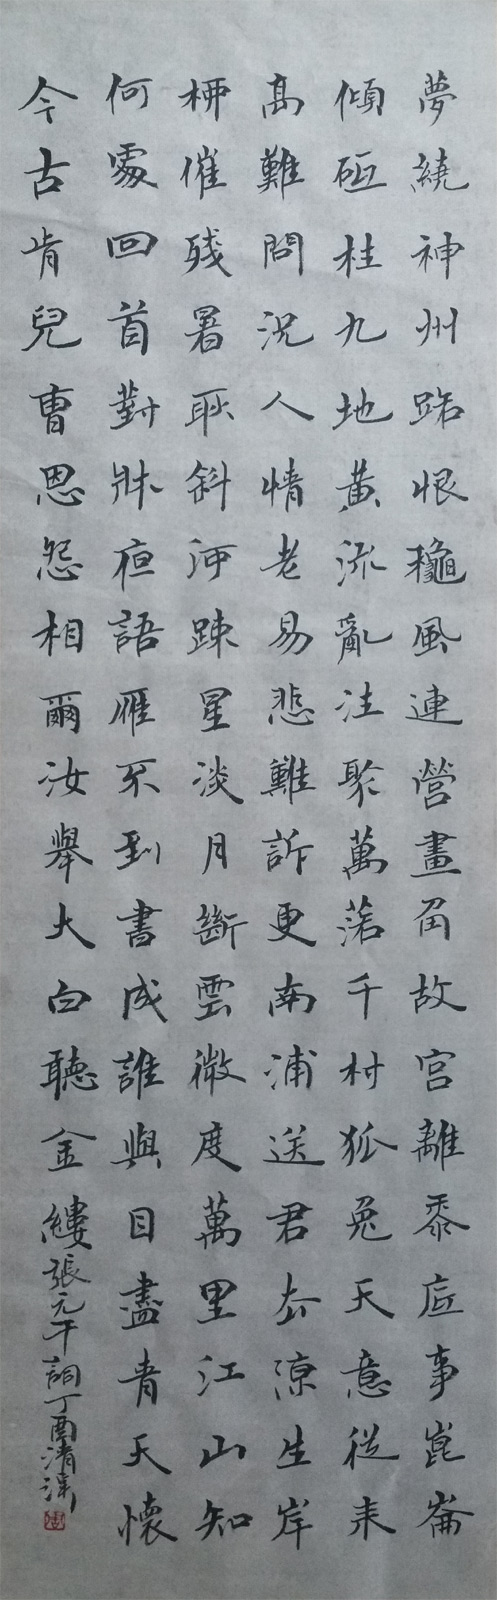 夢繞神州路恨龝風連營畫角故宮離黍底事崑崙
傾砥柱九地黃流亂注聚萬落千村狐兔天意從來
高難問況人情老易悲難訴更南浦送君去涼生岸
柳催殘暑耿斜河疎星淡月斷雲微度萬里江山知
何處回首對牀夜語雁不到書成誰與目盡青天懷
今古肯兒曹恩怨相爾汝舉大白聽金縷張元干詞丁酉清